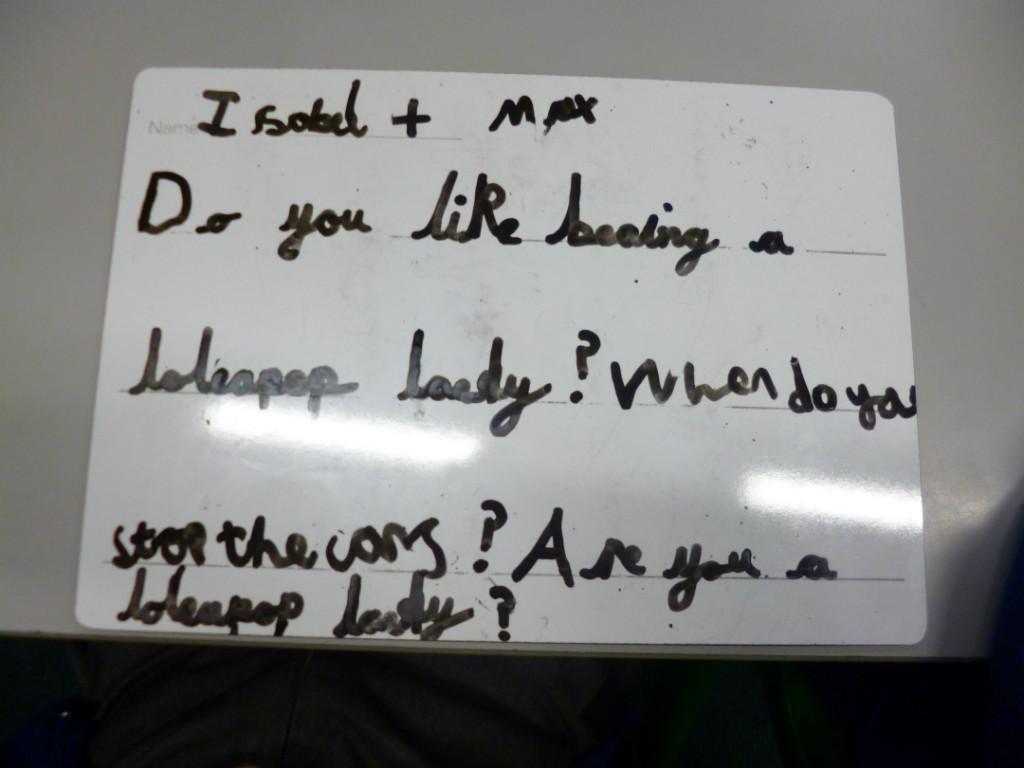 Name Isobel + Max
Do you like beaing a
loleapop laedy? When do you
stop the cars? Are you a
loleapop laedy?